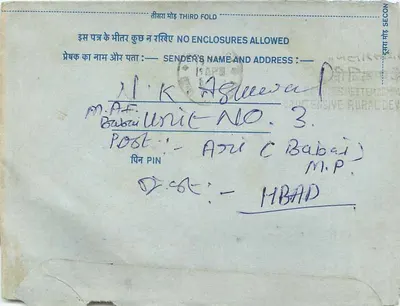 तीसरा मोड़ THIRD FOLD
दूसरा मोड़ SECON
इस पत्र के भीतर कुछ न रखिए NO ENCLOSURES ALLOWED
प्रेषक का नाम और पता :— SENDER'S NAME AND ADDRESS :—
N. K Agrawal
M.P.F. Babai Unit No. 3.
Post :- Ari ( Babai )
पिन PIN M.P.
:- HBAD